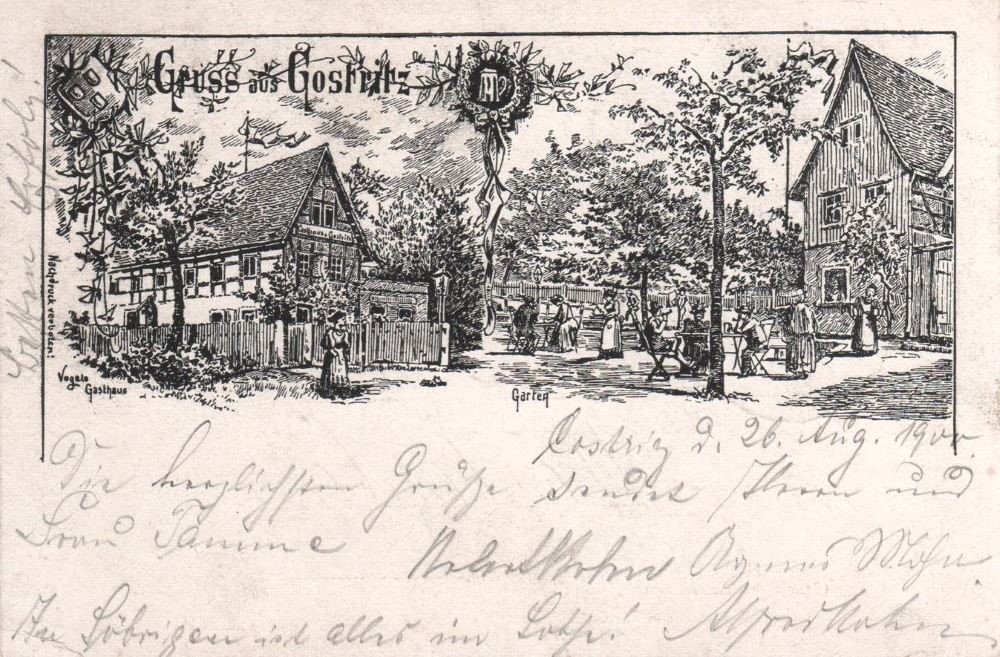 Gruss aus Gostritz
Nachdruck verboten!
Vogels
Gasthaus
Garten
Costriz d. 26. Aug. 1900.
Die herzlichsten Grüße sendet Ihnen und
Frau Tamme
Agnes Mohn
Im Übrigen ist alles im Lothe! Alfred Kohn